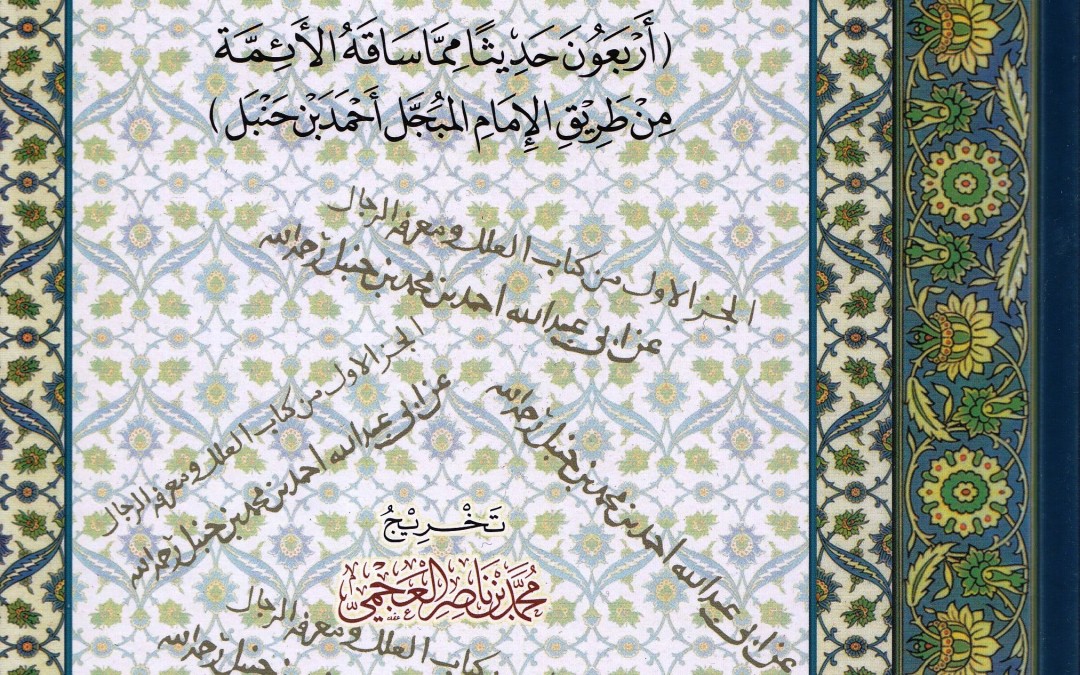 (أَرْبَعُونَ حَدِيثًا مِمَّا سَاقَهُ الأَئِمَّة
مِنْ طَرِيْقِ الإِمَامِ المُبَجَّل أَحْمَدَ بْنِ حَنْبَل)
الجز الاول من كتاب العلل ومعرفه الرجال
عن ابى عبدالله احمد بن محمد بن حنبل رحمه الله
الجز الاول من كتاب العلل ومعرفه الرجال
عن ابى عبدالله احمد بن محمد بن حنبل رحمه الله
عن ابى عبدالله احمد بن محمد بن حنبل رحمه الله
تَخْرِيْجُ
مُحَمَّد بْن نَاصِر العَجْمِيّ
كتاب العلل ومعرفه الرجال
بن حنبل رحمه الله